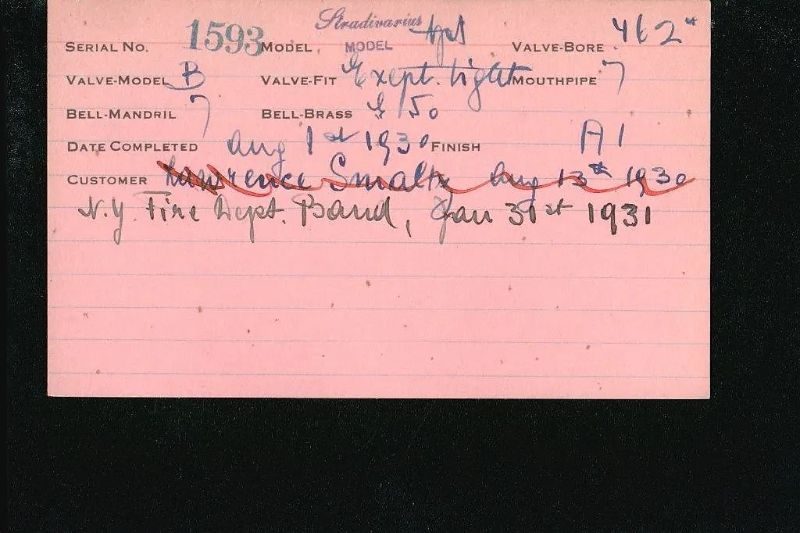 Stradivarius
SERIAL No. 1593 MODEL MODEL VALVE-BORE 462"
VALVE-MODEL B VALVE-FIT Exept. tight MOUTHPIPE 7
BELL-MANDRIL 7 BELL-BRASS 50
DATE COMPLETED Aug 1st 1930 FINISH A1
CUSTOMER Lawrence Smaltz Aug 13th 1930
N.Y. Fire Dept. Band, Jan 31st 1931